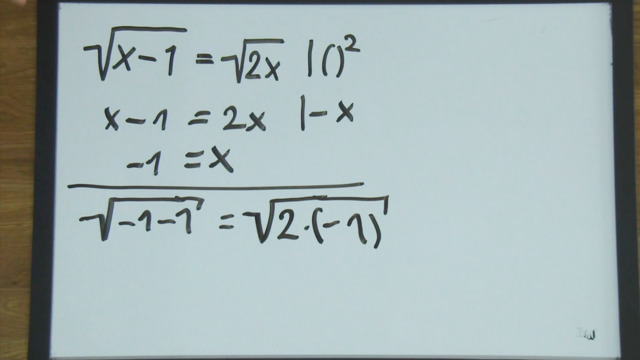 √(x-1) = √(2x) |()²
x-1 = 2x |-x
-1 = x
√(-1-1) = √(2·(-1))